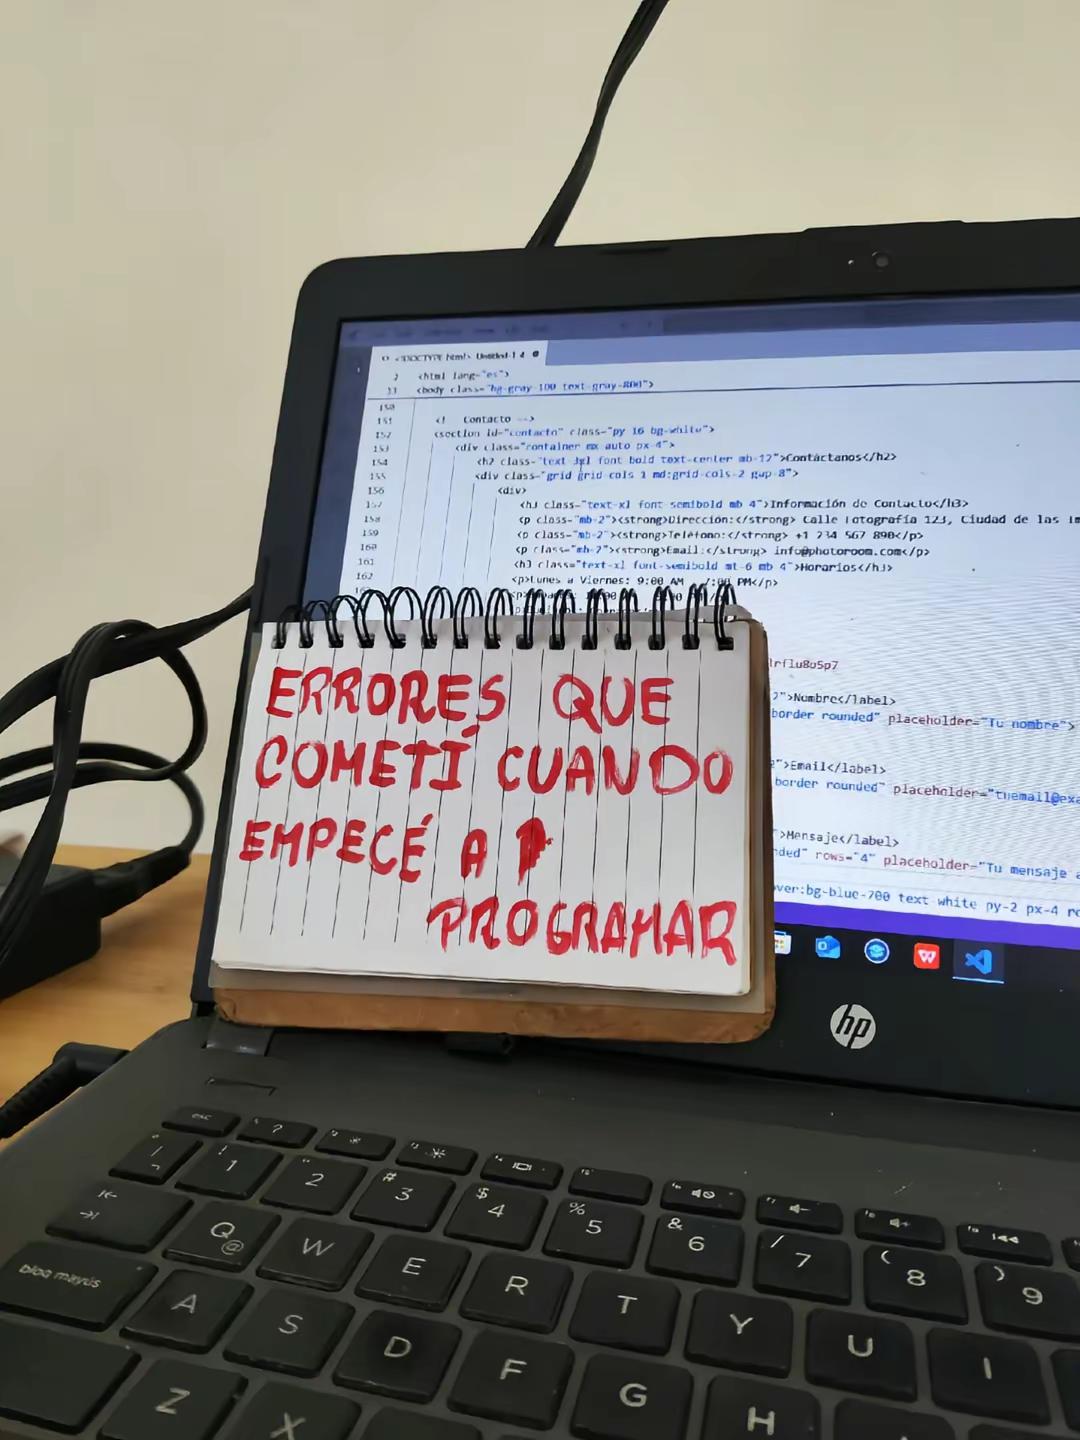 <!DOCTYPE html> Untitled-1 4
2 <html lang="es">
33 <body class="bg-gray-100 text-gray-800">
150
151 Contacto -->
152 <section id="contacto" class="py-16 bg-white">
153 <div class="container mx-auto px-4">
154 <h2 class="text-3xl font-bold text-center mb-12">Contáctanos</h2>
155 <div class="grid grid-cols-1 md:grid-cols-2 gap-8">
156 <div>
157 <h3 class="text-xl font-semibold mb-4">Información de Contacto</h3>
158 <p class="mb-2"><strong>Dirección:</strong> Calle Fotografía 123, Ciudad de las
159 <p class="mb-2"><strong>Teléfono:</strong> +1 234 567 890</p>
160 <p class="mb-2"><strong>Email:</strong> info@photoroom.com</p>
161 <h3 class="text-xl font-semibold mt-6 mb-4">Horarios</h3>
162 <p>Lunes a Viernes: 9:00 AM PM</p>
ERRORES QUE
COMETÍ CUANDO
EMPECÉ A
PROGRAMAR
Nombre</label>
border rounded" placeholder="Tu nombre">
">Email</label>
border rounded" placeholder="tuemail@exa
">Mensaje</label>
rows="4" placeholder="Tu mensaje a
over:bg-blue-700 text-white py-2 px-4 ro
hp
esc
! 1 " 2 # 3 $ 4 % 5 & 6 / 7 ( 8 ) 9
Q @ W E R T Y U I
bloq mayús A S D F G H
Z X